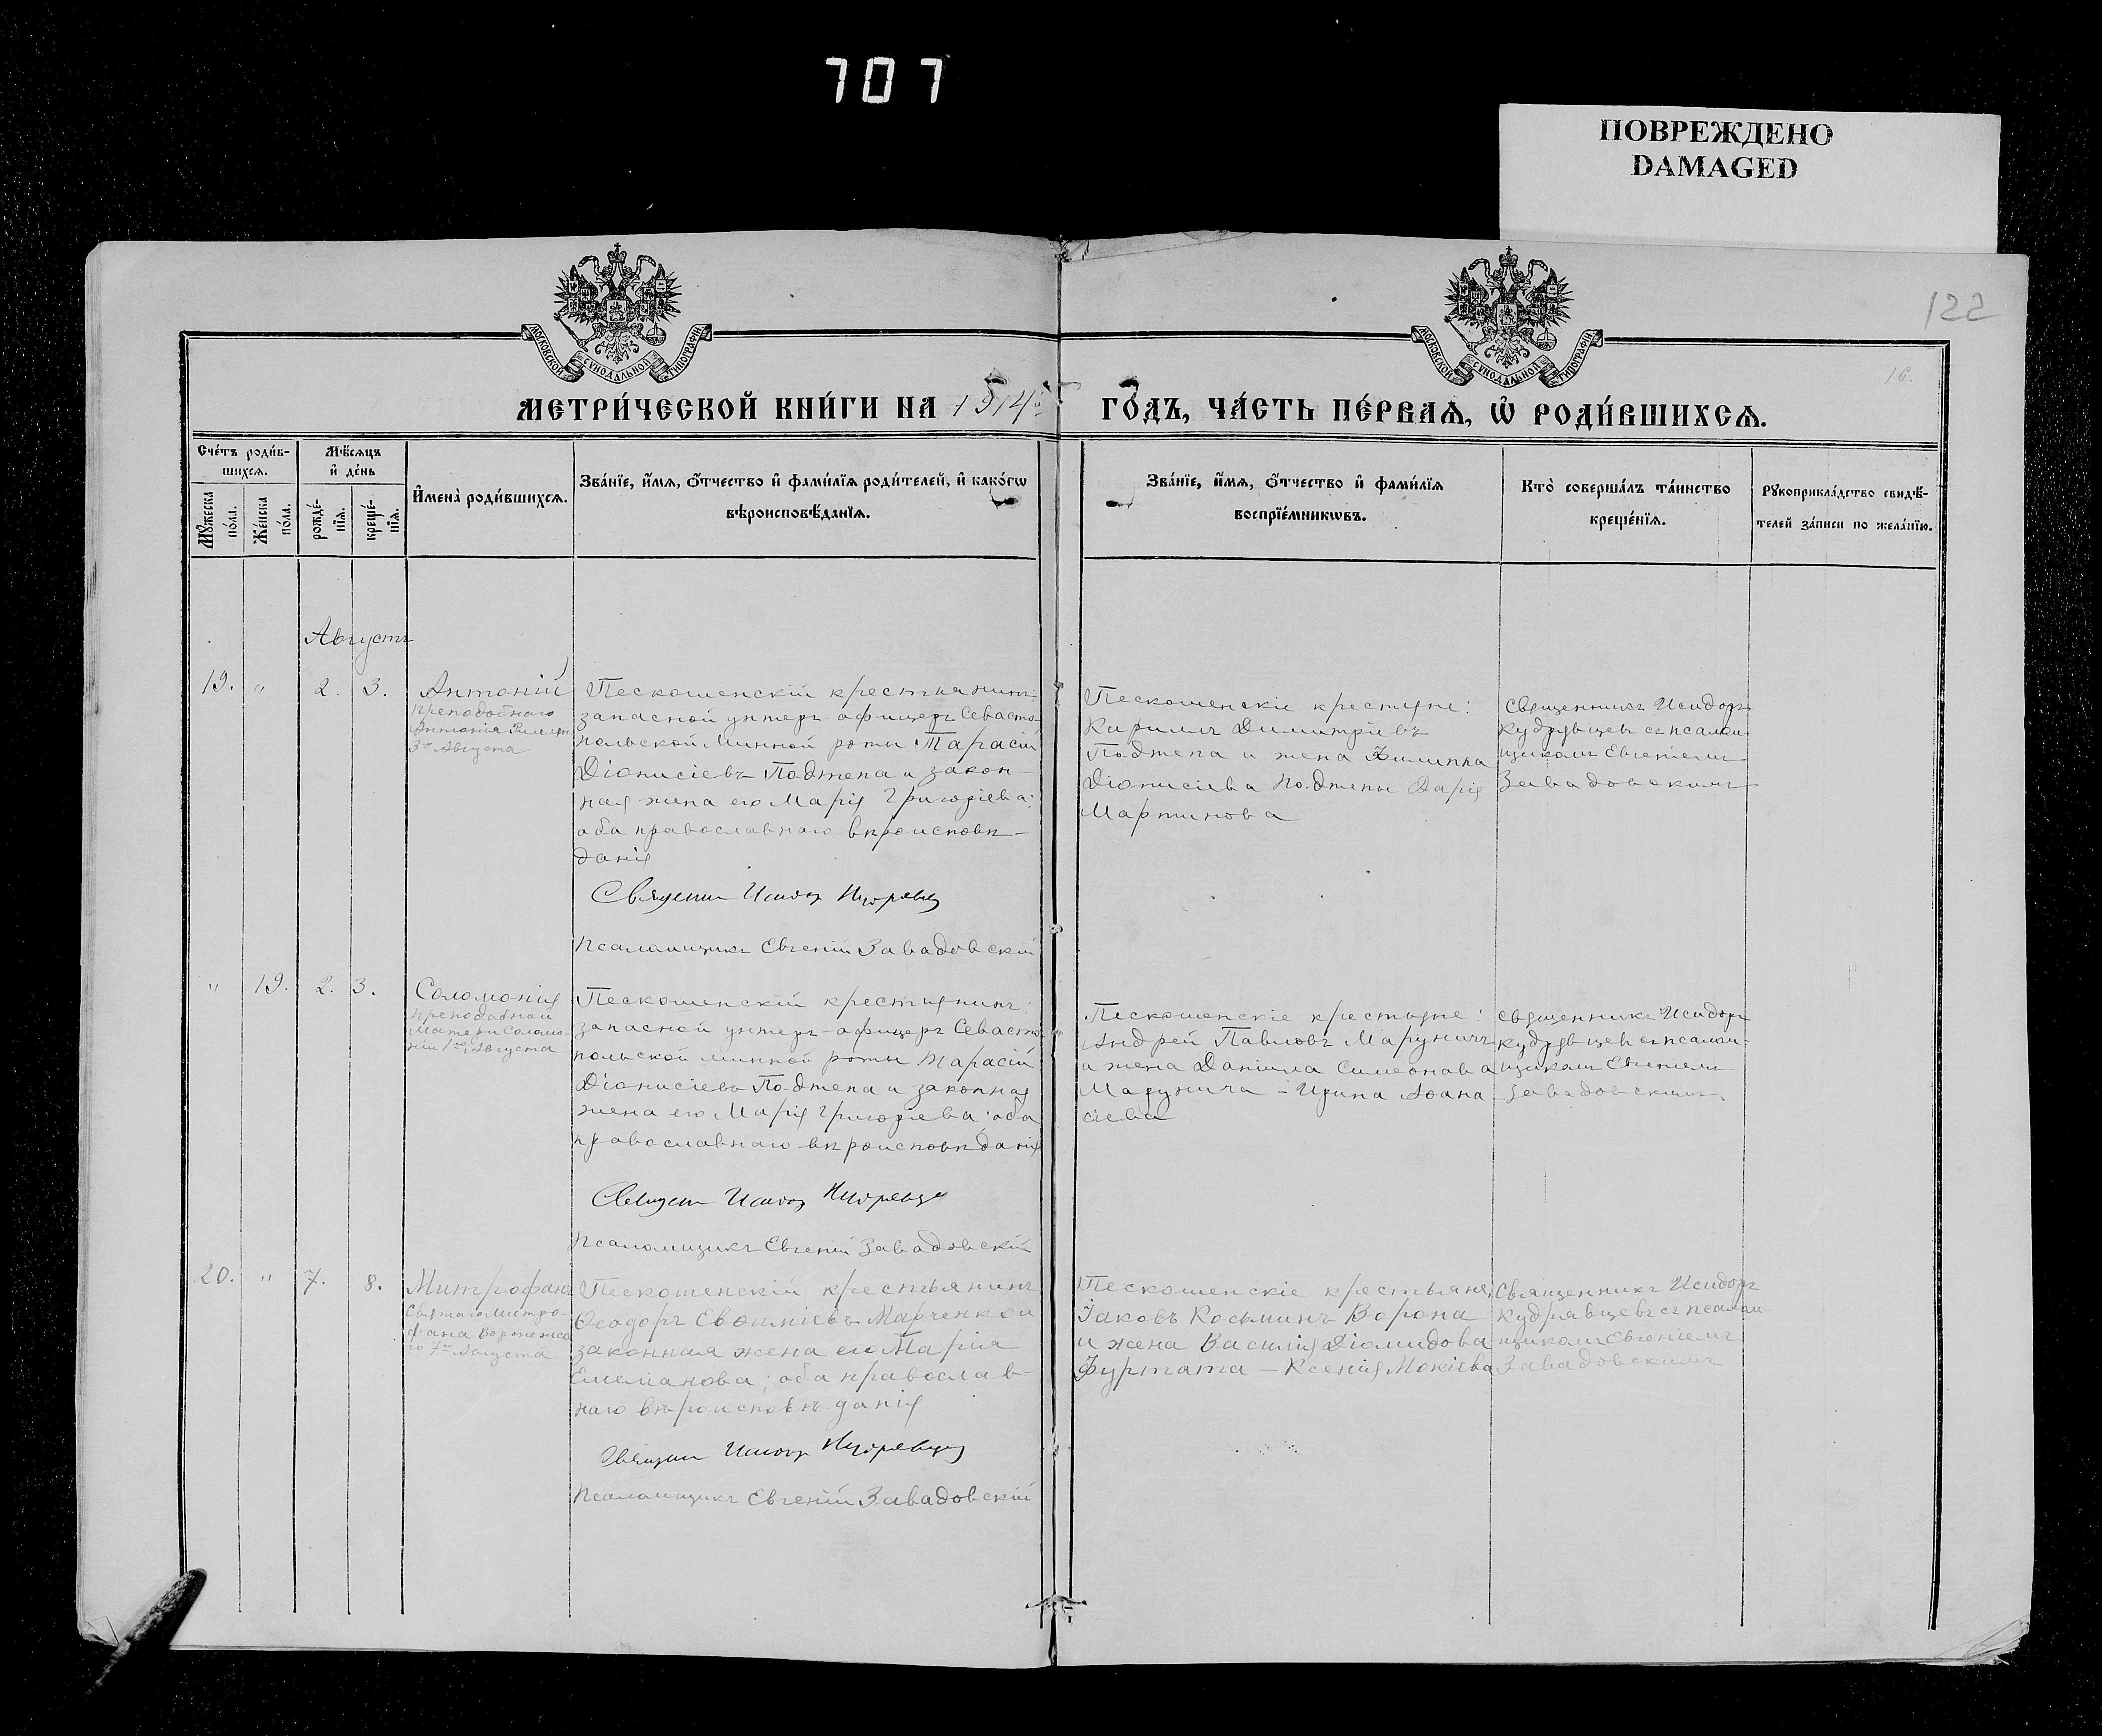 707
ПОВРЕЖДЕНО
DAMAGED
122
16.
МОСКОВСКОЙ СУНОДАЛЬНОЙ ТИПОГРАФIИ
МОСКОВСКОЙ СУНОДАЛЬНОЙ ТИПОГРАФIИ
МЕТРИ́ЧЕСКОЙ КНИ́ГИ НА 1914й
ГО́ДЪ, ЧА́СТЬ ПЕ́РВАѦ, Ѡ҆ РОДИ́ВШИХСѦ.
Сче́тъ роди́в-
шихсѧ.
Мꙋ́жеска по́ла.
Же́нска по́ла.
Мѣ́сѧцъ
и҆ де́нь
рожде́-
нїѧ.
креще́-
нїѧ.
И҆мена̀ роди́вшихсѧ.
Зва́нїе, и҆́мѧ, ѻ҆́тчество и҆ фами́лїѧ роди́телей, и҆ како́гѡ
вѣроисповѣ́данїѧ.
Зва́нїе, и҆́мѧ, ѻ҆́тчество и҆ фами́лїѧ
воспрїе́мникѡвъ.
Кто̀ соверша́лъ та́инство
креще́нїѧ.
Рꙋкоприкла́дство свидѣ́-
телей за́писи по жела́нїю.
Августъ
19. " 2. 3.
Антоній
преподобнаго
Антонія Римлян
3го Августа
Пескошенскій крестьянинъ:
запасной унтеръ офицеръ Севасто-
польской Минной роты Тарасій
Діонисіевъ Подтепа и закон-
ная жена его Марія Григоріева:
оба православнаго вѣроисповѣ-
данія
Священн Исидор Кудрявц
Псаломщикъ Евгеній Завадовскій
Пескошенскіе крестьяне:
Кириллъ Димитріевъ
Подтепа и жена Филиппа
Діонисіева Подтепы Дарія
Мартинова
священникъ Исидоръ
Кудрявцевъ съ псалом-
щикомъ Евгеніемъ
Завадовскимъ
" 19. 2. 3.
Соломонія
преподобной
матери Соломо-
ніи 1го Августа
Пескошенскій крестьянинъ:
запасной унтеръ-офицеръ Севасто
польской минной роты Тарасій
Діонисіевъ Подтепа и законная
жена его Марія Григоріева: оба
православнаго вѣроисповѣданія
Священ Исидор Кудрявце
Псаломщикъ Евгеній Завадовскій
Пескошенскіе крестьяне:
Андрей Павловъ Маруничъ
и жена Даніила Симеонова
Марунича – Ирина Аөана-
сіева
священникъ Исидоръ
Кудрявцевъ съ псалом-
щикомъ Евгеніемъ
Завадовскимъ.
20. " 7. 8.
Митрофанъ
Святаго Митро-
фана Воронежска
го 7го Августа
Пескошенскій крестьянинъ
Ѳеодоръ Евѳиміевъ Марченко и
законная жена его Марія
Емеліанова; оба православ-
наго вѣроисповѣданія
Священ Исидор Кудрявцев
Псаломщикъ Евгеній Завадовскій
Пескошенскіе крестьяне:
Іаковъ Косьминъ Ворона
и жена Василія Діомидова
Фуртата – Ксенія Мокіева
Священникъ Исидоръ
Кудрявцевъ съ псалом-
щикомъ Евгеніемъ
Завадовскимъ